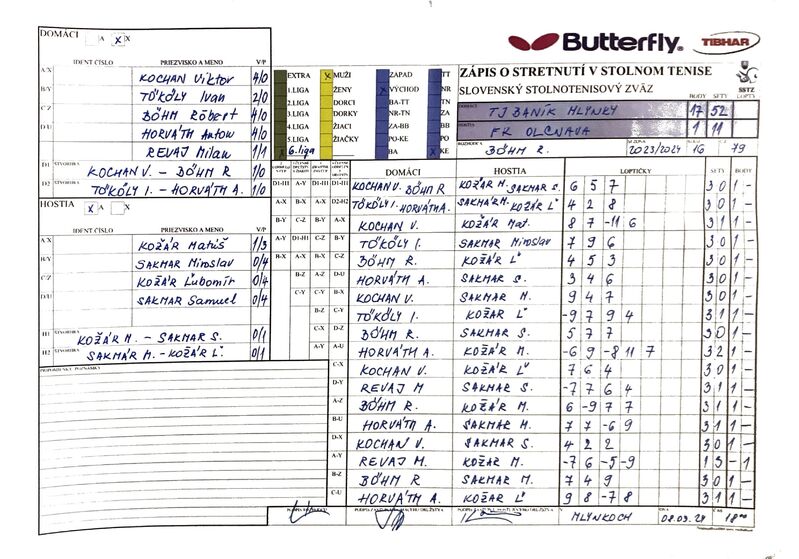 Butterfly
TIBHAR
DOMÁCI A X X
IDENT ČÍSLO PRIEZVISKO A MENO V/P
A/X KOCHAN Viktor 4/0
B/Y TÖKÖLY Ivan 2/0
C/Z BÖHM Róbert 4/0
D/U HORVÁTH Anton 4/0
REVAJ Milan 1/1
D1 ŠTVORHRA KOCHAN V. - BÖHM R 1/0
D2 ŠTVORHRA TÖKÖLY I. - HORVÁTH A. 1/0
HOSTIA X A X
IDENT ČÍSLO PRIEZVISKO A MENO V/P
A/X KOŽÁR Matúš 1/3
B/Y SAKMAR Miroslav 0/4
C/Z KOŽÁR Ľubomír 0/4
D/U SAKMAR Samuel 0/4
H1 ŠTVORHRA KOŽÁR M. - SAKMAR S. 0/1
H2 ŠTVORHRA SAKMÁR M. - KOŽÁR Ľ. 0/1
PRIPOMIENKY, POZNÁMKY
EXTRA X MUŽI ZAPAD TT
1.LIGA ŽENY VÝCHOD NR
2.LIGA DORCI BA-TT TN
3.LIGA DORKY NR-TN ZA
4.LIGA ŽIACI ZA-BB BB
5.LIGA ŽIAČKY PO-KE PO
X 6.liga BA X KE
ZÁPIS O STRETNUTÍ V STOLNOM TENISE
SLOVENSKÝ STOLNOTENISOVÝ ZVÄZ
SSTZ
BODY SETY LOPTY
DOMÁCI TJ BANÍK MLYNKY 17 52
HOSTIA FK OLCNAVA 1 11
ROZHODCA BÖHM R. SEZÓNA 2023/2024 16 79
DOMÁCI HOSTIA LOPTIČKY SETY BODY
D1-H1 KOCHAN V. BÖHM R KOŽÁR M. SAKMAR S. 6 5 7 3 0 1 -
D2-H2 TÖKÖLY I. HORVÁTH A. SAKMAR M. KOŽÁR Ľ 4 2 8 3 0 1 -
A-X KOCHAN V. KOŽÁR Mat. 8 7 -11 6 3 1 1 -
B-Y TÖKÖLY I. SAKMAR Miroslav 7 9 6 3 0 1 -
C-Z BÖHM R. KOŽÁR Ľ 4 5 3 3 0 1 -
D-U HORVÁTH A. SAKMAR S. 3 4 6 3 0 1 -
KOCHAN V. SAKMAR M. 9 4 7 3 0 1 -
TÖKÖLY I. KOŽAR Ľ -9 7 9 4 3 1 1 -
BÖHM R. SAKMAR S. 5 7 7 3 0 1 -
HORVÁTH A. KOŽÁR M. -6 9 -8 11 7 3 2 1 -
C-X KOCHAN V. KOŽÁR Ľ 7 6 4 3 0 1 -
D-Y REVAJ M SAKMAR S. -7 7 6 4 3 1 1 -
A-Z BÖHM R. KOŽÁR M. 6 -9 7 7 3 1 1 -
B-U HORVÁTH A. SAKMAR M. 7 7 -6 9 3 1 1 -
D-X KOCHAN V. SAKMAR S. 4 2 2 3 0 1 -
A-Y REVAJ M. KOŽAR M. -7 6 -5 -9 1 3 - 1
B-Z BÖHM R SAKMAR M. 7 4 9 3 0 1 -
C-U HORVÁTH A. KOŽÁR Ľ 9 8 -7 8 3 1 1 -
V MLYNKOCH DŇA 08.03.24 18⁰⁰